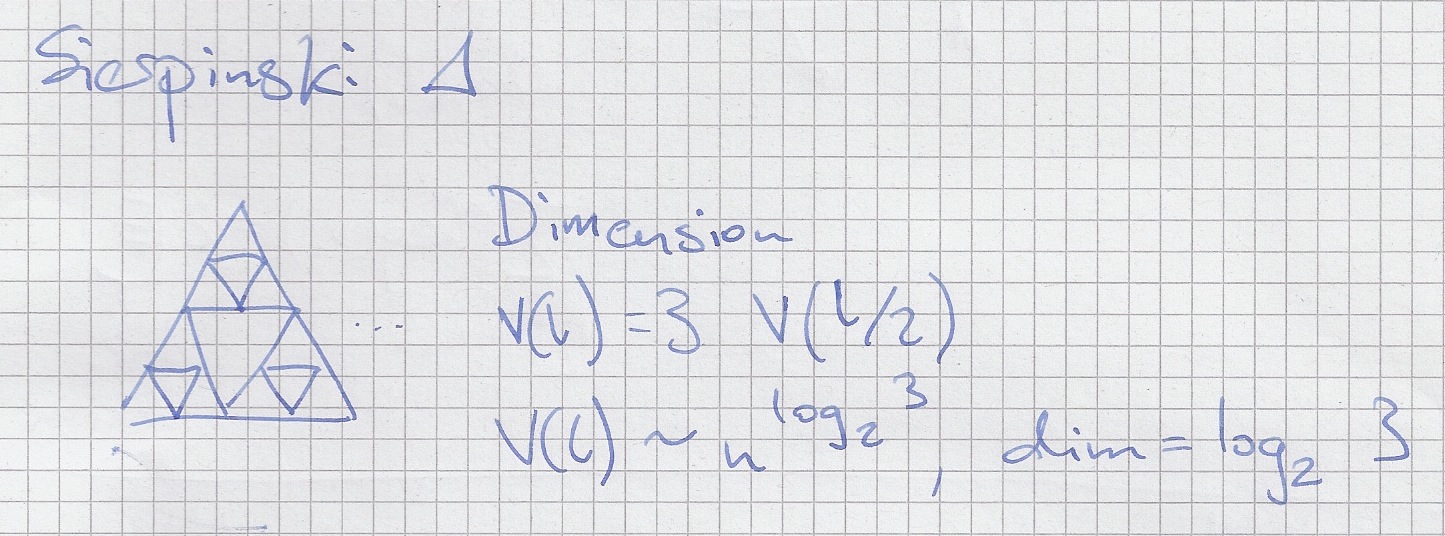 Siespinski Δ
Dimension
V(l) = 3 V(l/2)
...
V(l) ~ n^{log_2 3}, dim = log_2 3